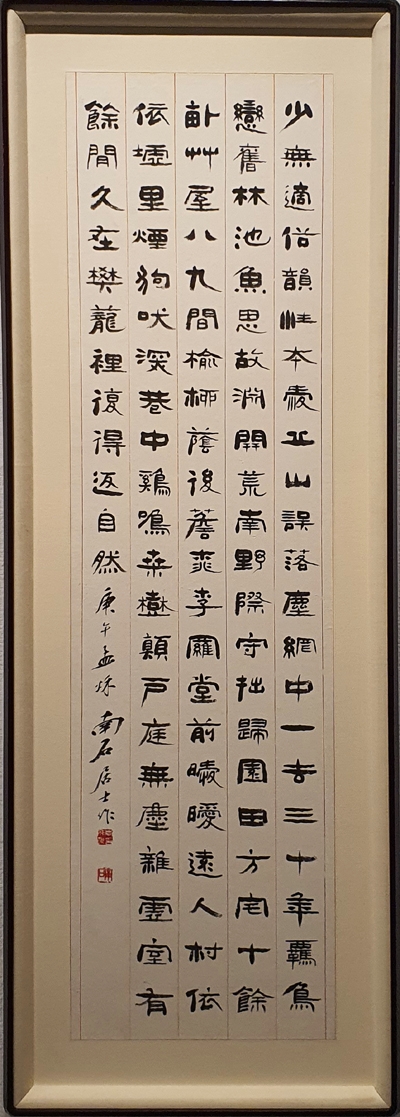 少無適俗韻性本愛丘山誤落塵網中一去三十年羈鳥
戀舊林池魚思故淵開荒南野際守拙歸園田方宅十餘
畝艸屋八九間榆柳蔭後簷桃李羅堂前曖曖遠人村依
依墟里煙狗吠深巷中鷄鳴桑樹顛戶庭無塵雜虛室有
餘閒久在樊籠裡復得返自然 庚午孟秋 南石居士作